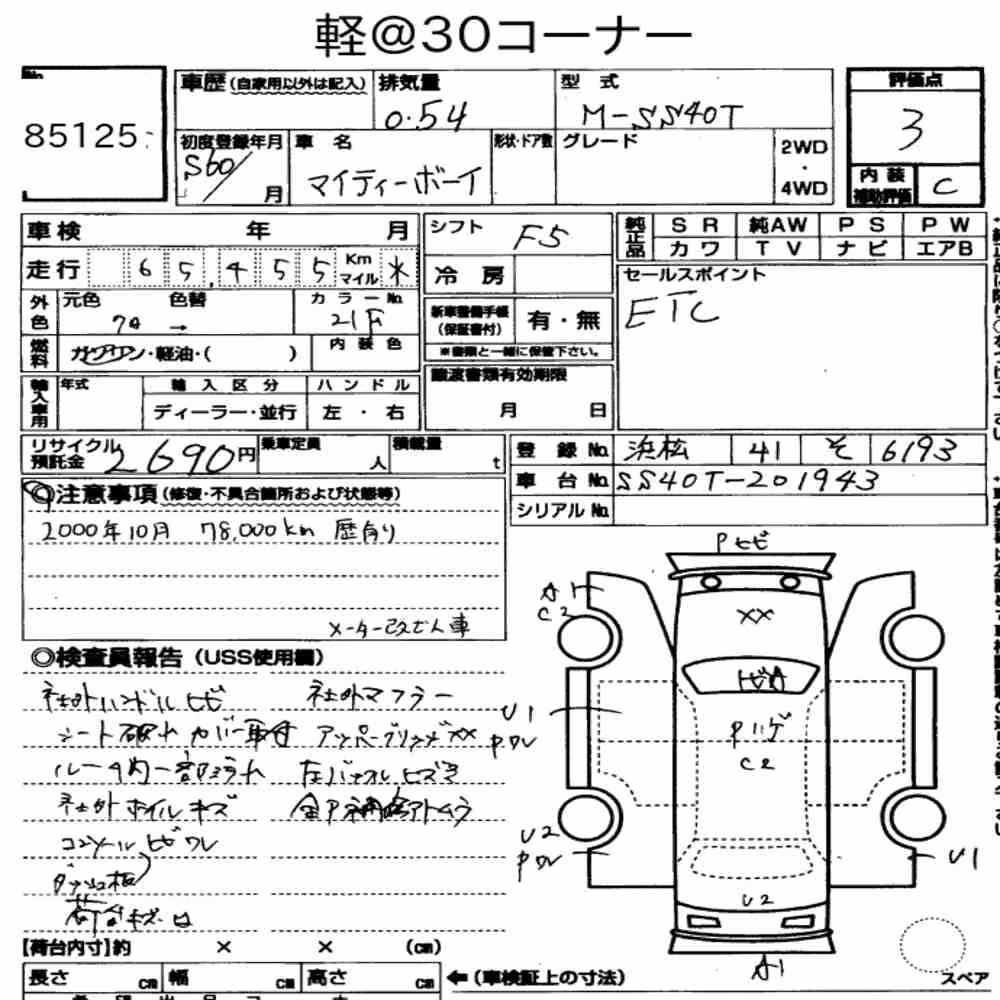 軽@30コーナー
No.
85125
車歴(自家用以外は記入) 排気量 型式 評価点
0.54 M-SS40T 3
初度登録年月 車名 形状・ドア数 グレード 2WD・4WD
S60/ 月 マイティーボーイ
内装補助評価 C
車検 年 月
走行 65,455 Km マイル *
シフト F5
冷房
純正品 SR 純AW PS PW
カワ TV ナビ エアB
セールスポイント
ETC
外色 元色 色替 カラーNo.
→ 21F
燃料 ガソリン・軽油・( ) 内装色
新車整備手帳(保証書付) 有・無
※書類と一緒に保管下さい。
輸入車用 年式 輸入区分 ハンドル
ディーラー・並行 左・右
譲渡書類有効期限
月 日
リサイクル預託金 2690円 乗車定員 人 積載量 t
登録No. 浜松 41 そ 6193
車台No. SS40T-201943
シリアルNo.
◎注意事項(修復・不具合箇所および状態等)
2000年10月 78,000km 歴有り
メーター改ざん車
◎検査員報告(USS使用欄)
社外ハンドルヒビ 社外マフラー
シート破れ カバー取付
社外ホイルキズ
コンソールヒビワレ
荷台キズ
Pヒビ
A1
C2
XX
U1
Pワレ
Pハゲ
C2
U2
Pワレ
U1
U2
A1
【荷台内寸】約 × × (cm)
長さ cm 幅 cm 高さ cm ←(車検証上の寸法) スペア